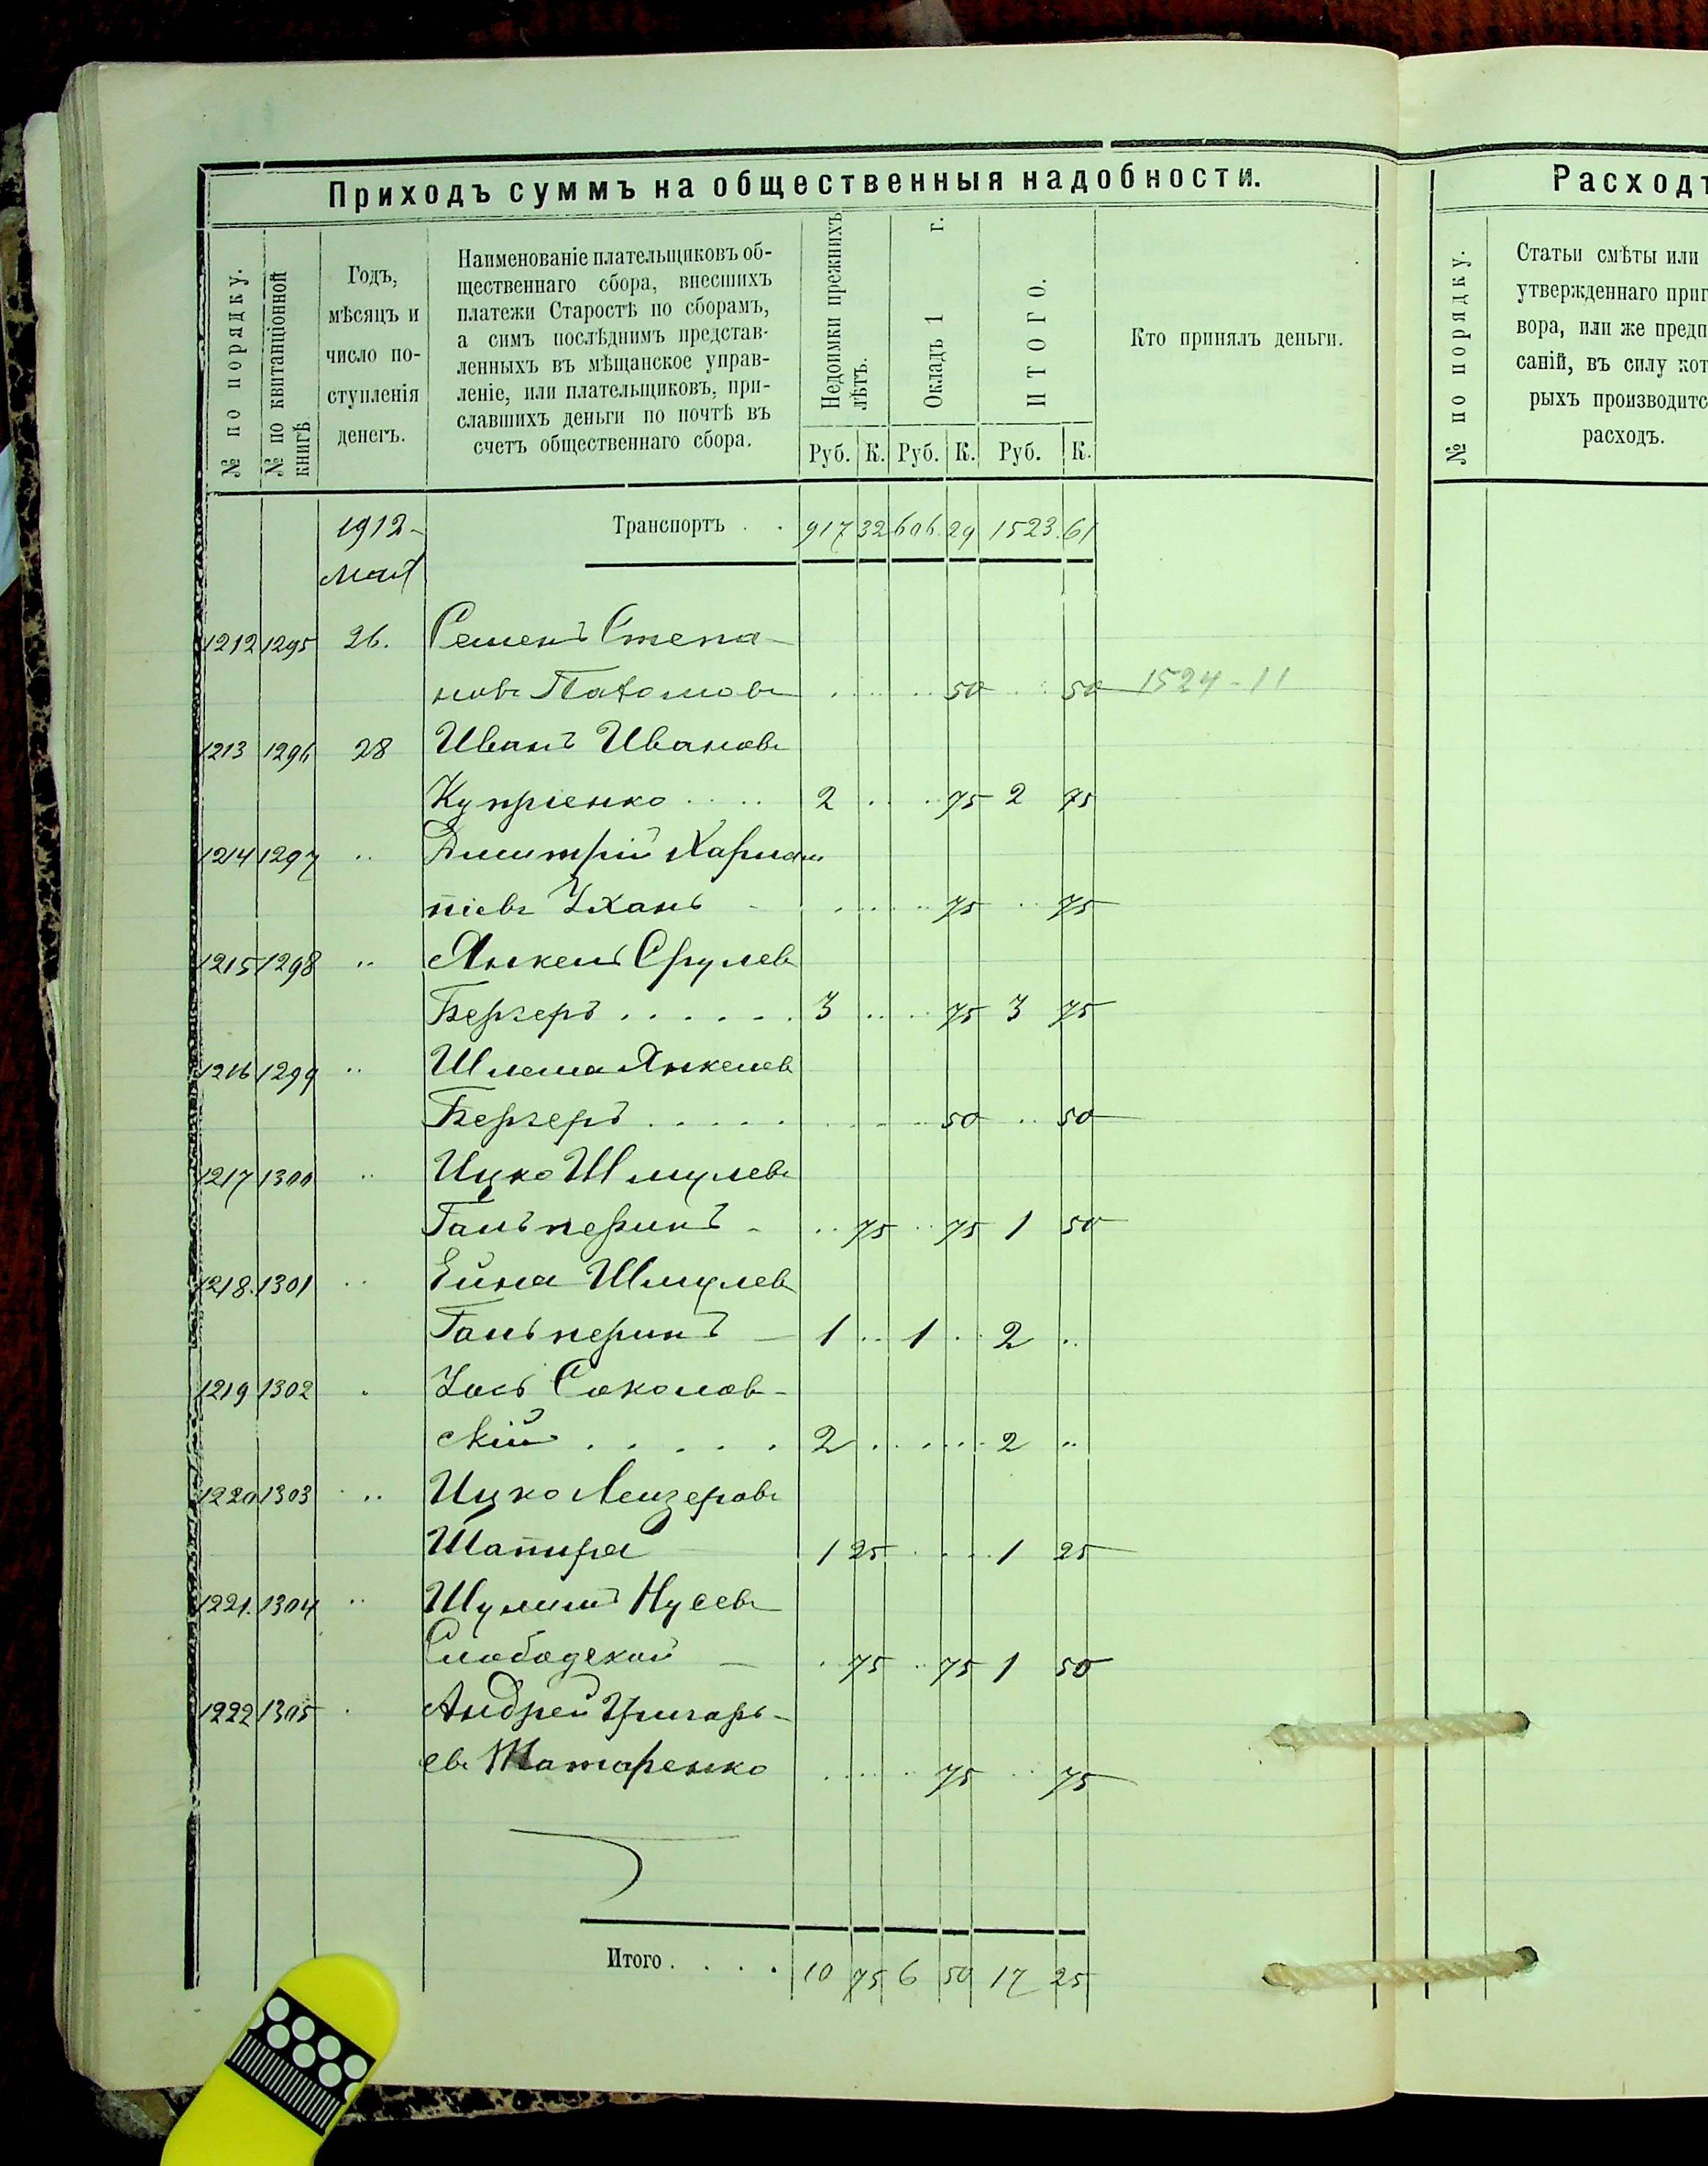 Приходъ суммъ на общественныя надобности.
№ по порядку.
№ по квитанціонной книгѣ
Годъ, мѣсяцъ и число поступленія денегъ.
Наименованіе плательщиковъ об-
щественнаго сбора, внесшихъ
платежи Старостѣ по сборамъ,
а симъ послѣднимъ представ-
ленныхъ въ мѣщанское управ-
леніе, или плательщиковъ, при-
славшихъ деньги по почтѣ въ
счетъ общественнаго сбора.
Недоимки прежнихъ лѣтъ.
Окладъ 1 г.
ИТОГО.
Кто принялъ деньги.
Руб. К. Руб. К. Руб. К.
1912 - Транспортъ . . 917 32 606 29 1523 61
Май
1212 1295 26. Семенъ Степа-
новъ Пахомовъ 50 50 1524-11
1213 1296 28 Иванъ Ивановъ
Купріенко 2 75 2 75
1214 1297 " Дмитрій
75 75
1215 1298 " Янкель Срулевъ
Бергеръ 3 75 3 75
1216 1299 " Шлема Янкелев
Бергеръ 50 50
1217 1300 " Ицко Шмулевъ
Гальперинъ 75 75 1 50
1218. 1301 " Ейна Шмулев
Гальперинъ 1 " 1 " 2 "
1219 1302 " Іось Соколов-
скій 2 2 "
1220 1303 " Ицко Лейзеровъ
Шапира 1 25 1 25
1221. 1304 " Шулимъ Нусевъ
Слободской 75 75 1 50
1222 1305 " Андрей Григорь-
евъ Татаренко 75 75
Итого . . . . 10 75 6 50 17 25
Расходъ
№ по порядку.
Статьи смѣты или
утвержденнаго приг
вора, или же предп
саній, въ силу кот
рыхъ производитс
расходъ.